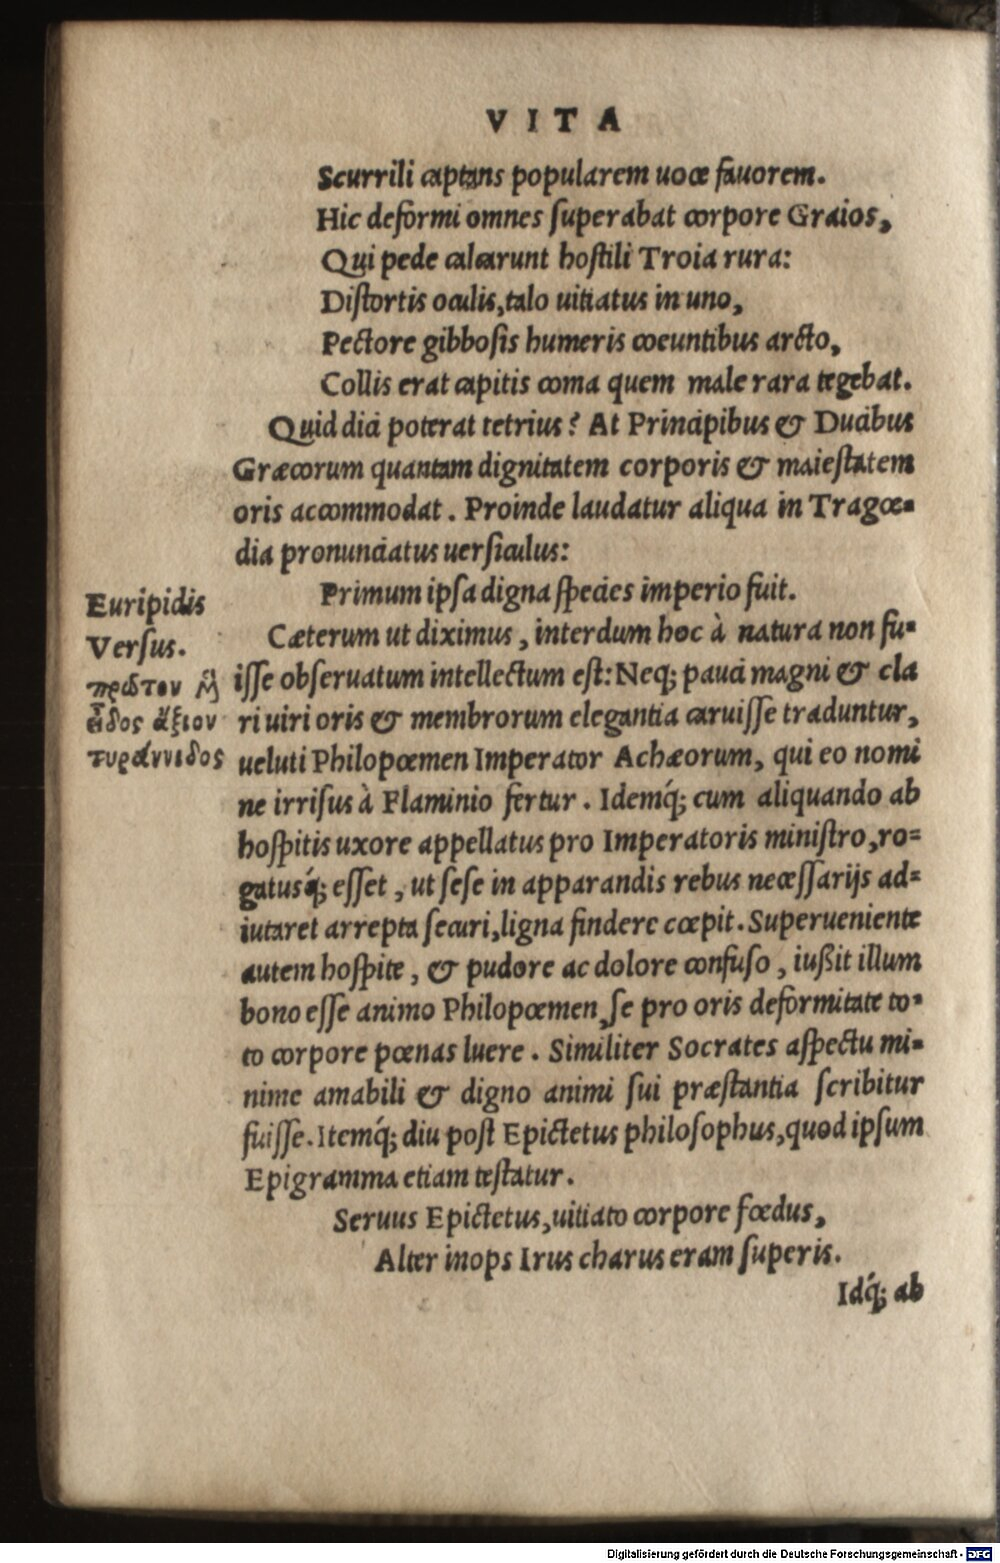 VITA
Scurrili captans popularem uoce fauorem.
Hic deformi omnes superabat corpore Graios,
Qui pede calcarunt hostili Troia rura:
Distortis oculis, talo uitiatus in uno,
Pectore gibbosis humeris coeuntibus arcto,
Collis erat capitis coma quem male rara tegebat.
Quid dici poterat tetrius? At Principibus & Ducibus
Græcorum quantam dignitatem corporis & maiestatem
oris accommodat. Proinde laudatur aliqua in Tragœ-
dia pronunciatus uersiculus:
Primum ipsa digna species imperio fuit.
Euripidis
Versus.
πρῶτον μὲν
εἶδος ἄξιον
τυραννίδος
Cæterum ut diximus, interdum hoc à natura non fu-
isse obseruatum intellectum est: Neq; pauci magni & cla
ri uiri oris & membrorum elegantia caruisse traduntur,
ueluti Philopœmen Imperator Achæorum, qui eo nomi
ne irrisus à Flaminio fertur. Idemq́; cum aliquando ab
hospitis uxore appellatus pro Imperatoris ministro, ro-
gatusq́; esset, ut sese in apparandis rebus necessarijs ad-
iutaret arrepta securi, ligna findere cœpit. Superueniente
autem hospite, & pudore ac dolore confuso, iußit illum
bono esse animo Philopœmen, se pro oris deformitate to-
to corpore pœnas luere. Similiter Socrates aspectu mi-
nime amabili & digno animi sui præstantia scribitur
fuisse. Itemq́; diu post Epictetus philosophus, quod ipsum
Epigramma etiam testatur.
Seruus Epictetus, uitiato corpore fœdus,
Alter inops Irus charus eram superis.
Idq́; ab
Digitalisierung gefördert durch die Deutsche Forschungsgemeinschaft - DFG